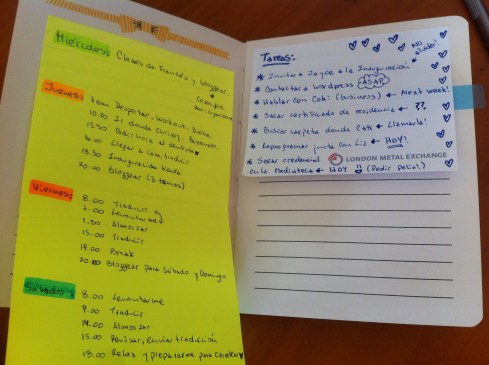 Miércoles: Clases de Francés y bloggear.
Jueves:
Despertar, workout, Ducha
10.20 Ir donde
15.30 Pedir hora al dentista
16.00 Llegar a casa, traducir
18.30 Inauguración tienda
20.00 Bloggear (3 temas)
Viernes:
8.00 Traducir
7.00 Levantarme
1.30 Almorzar
15.00 Traducir
19.00 Break
20.00 Bloggear para Sábado y Domingo
Sábado:
8.00 Levantarme
9.00 Traducir
14.00 Almorzar
15.00 Revisar, enviar traducción
18.00 Relax y prepararme para
Tareas:
* Invitar a Joyce a la Inauguración
NO olvidar!
* Contactar a wordpress ASAP
* Hablar con Coti (business) ← Next week!
* Sacar certificado de residencia ← ??
* Buscar tarjeta donde Cata ← Llamarla!
* Reprogramar junta con Liz ← HOY!
* Sacar credencial
en la mediateca ← HOY (Pedir polola!)
LONDON METAL EXCHANGE